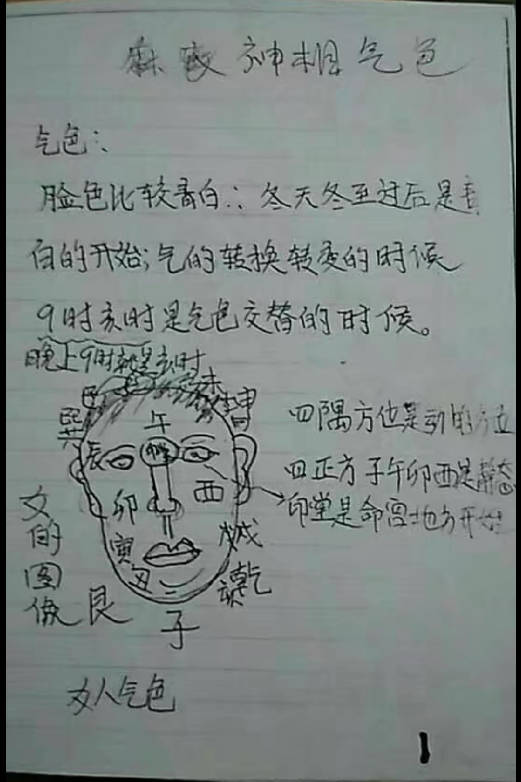 麻衣神相气色
气色:
脸色比较青白:冬天冬至过后是青
白的开始;气的转换转变的时候
9时亥时是气色交替的时候。
晚上9时就是亥时
巳 未
巽 午 坤
辰
卯 西
寅 戌
丑 乾
艮
子
四隅方位是引的方位
四正方子午卯西是静态
印堂是命宫地方开始
女的图像
女人气色
1